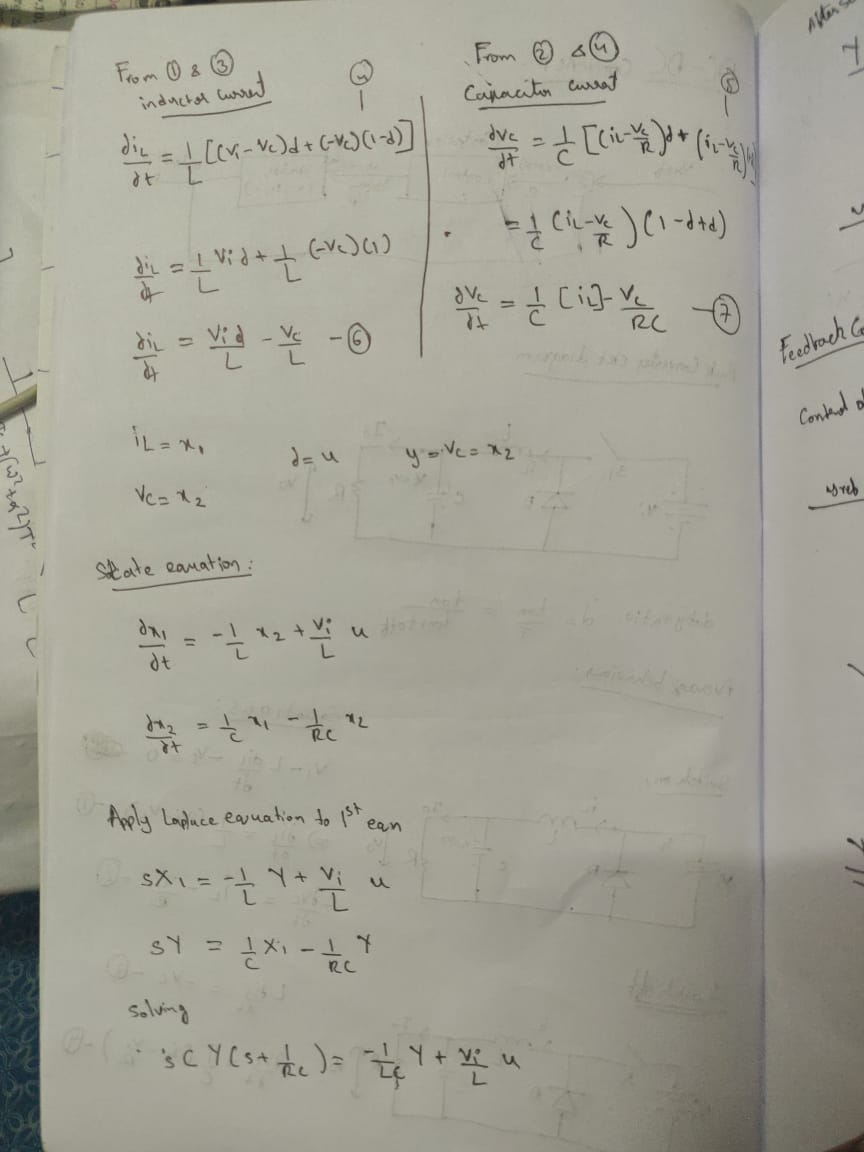 From ① & ③
inductor current
④
∂iL/∂t = 1/L [(Vi - Vc)d + (-Vc)(1-d)]
∂iL/∂t = 1/L Vi d + 1/L (-Vc)(1)
∂iL/∂t = Vi d/L - Vc/L - ⑥
From ② & ④
Capacitor current
⑤
∂Vc/∂t = 1/C [(iL - Vc/R)d + (iL - Vc/R)
= 1/C (iL - Vc/R) (1-d+d)
∂Vc/∂t = 1/C [iL] - Vc/RC - ⑦
iL = x1
Vc = x2
d = u
y = Vc = x2
State eauation :
∂x1/∂t = -1/L x2 + Vi/L u
∂x2/∂t = 1/C x1 - 1/RC x2
Apply Laplace eauation to 1st ean
sX1 = -1/L Y + Vi/L u
sY = 1/C X1 - 1/RC Y
solving
sC Y(s + 1/RC) = -1/LC Y + Vi/L u
After
Y
Feedback Co
Control o
yreb